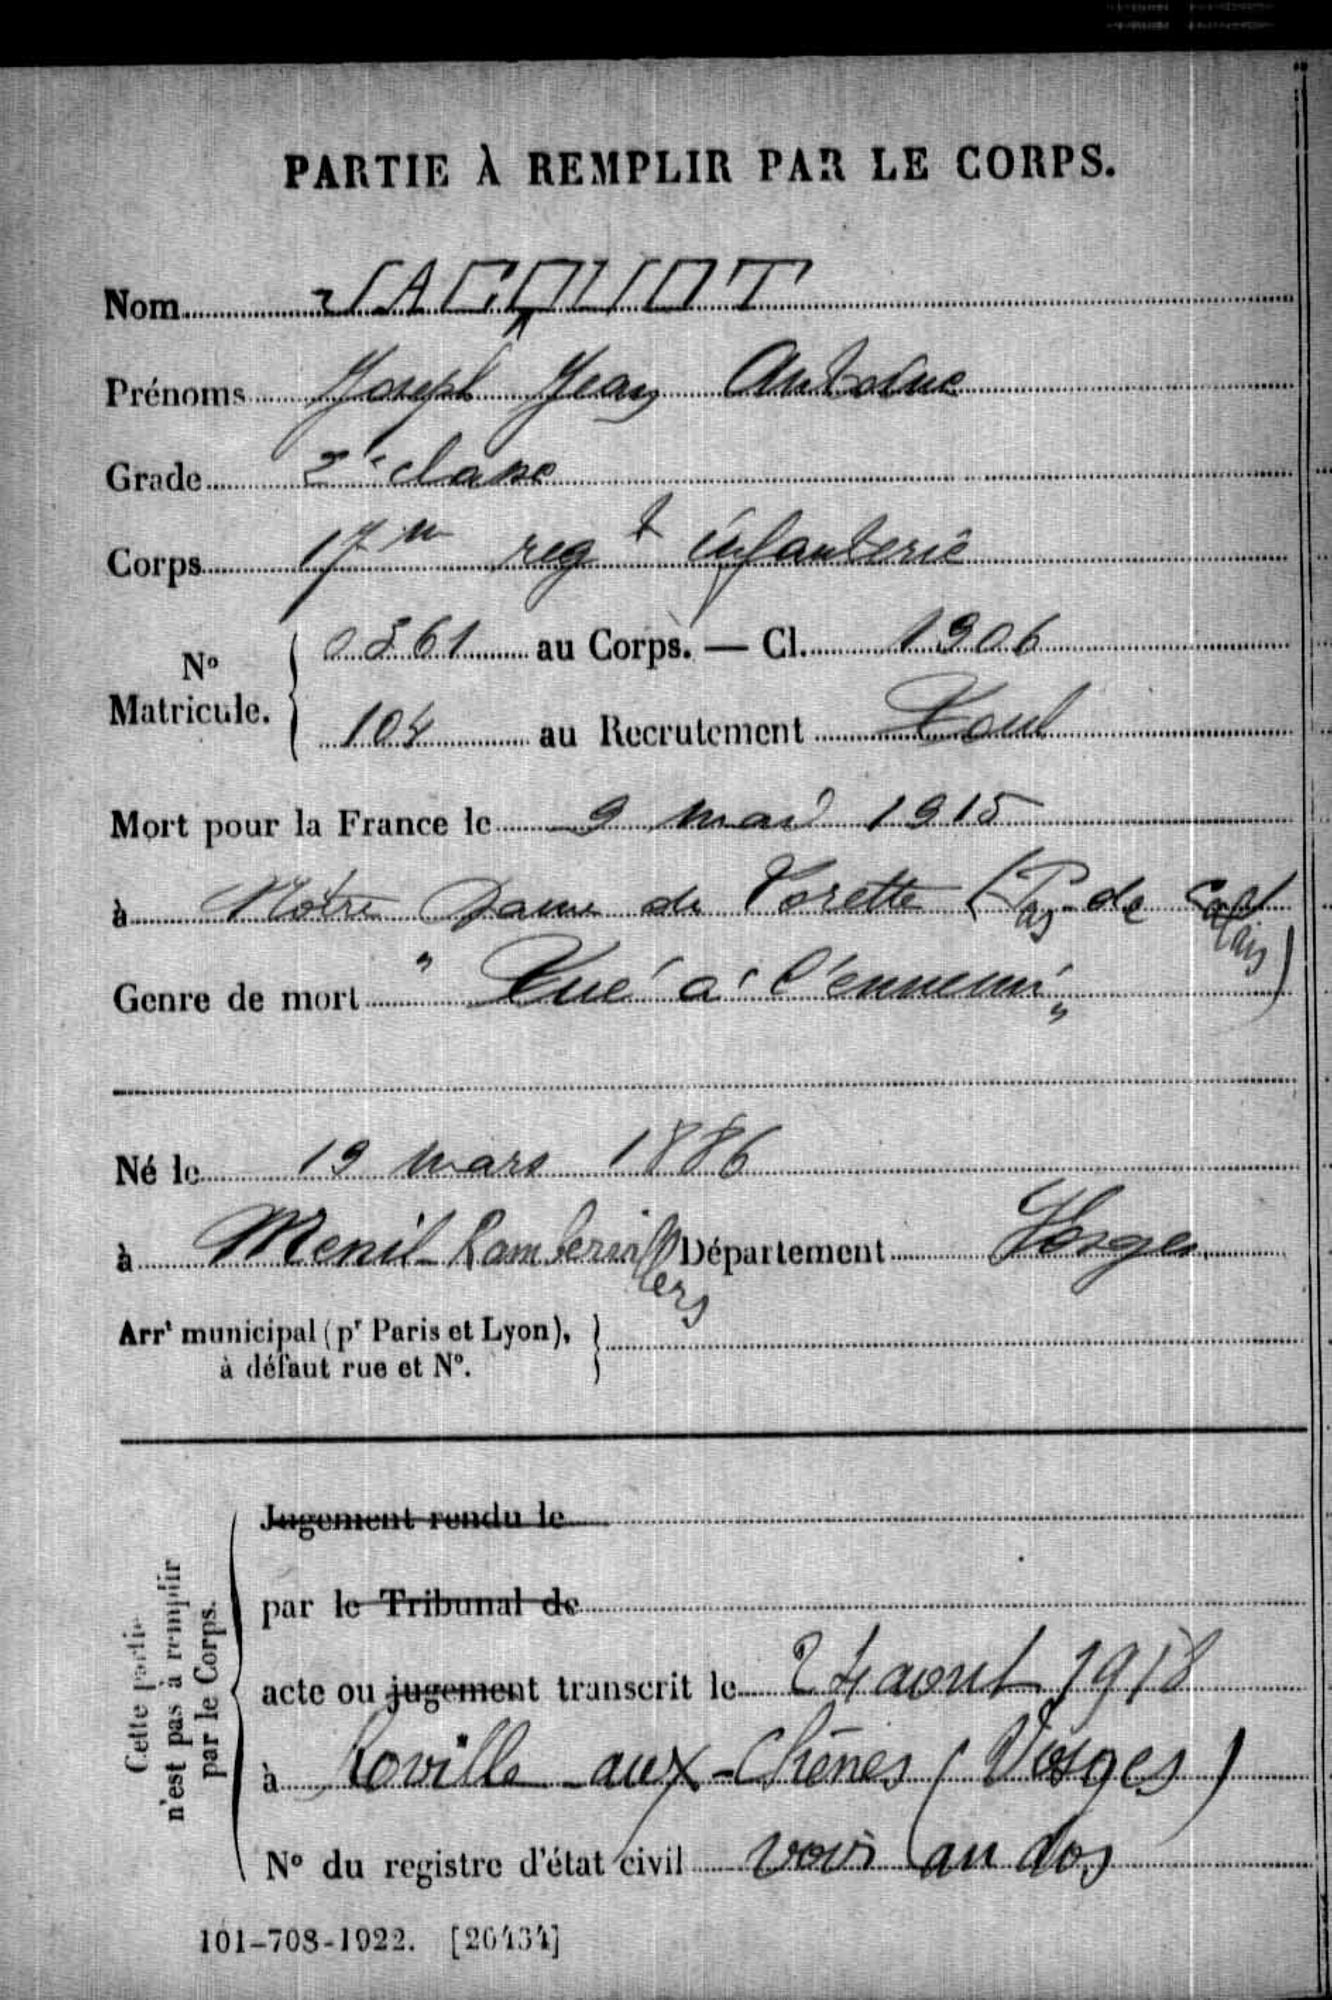 PARTIE À REMPLIR PAR LE CORPS.
Nom JACQUOT
Prénoms Joseph Jean Antoine
Grade 2e classe
Corps 17me regt infanterie
No Matricule. 0561 au Corps. — Cl. 1906
104 au Recrutement Toul
Mort pour la France le 9 mai 1915
à Notre Dame de Lorette (Pas-de Calais)
Genre de mort "Tué à l'ennemi"
Né le 19 mars 1886
à Menil-Rambervillers Département Vosges
Arrt municipal (pr Paris et Lyon),
à défaut rue et No.
Cette partie n'est pas à remplir par le Corps.
Jugement rendu le
par le Tribunal de
acte ou jugement transcrit le 24 aout 1918
à Roville-aux-Chênes (Vosges)
No du registre d'état civil voir au dos
101-708-1922. [26434]